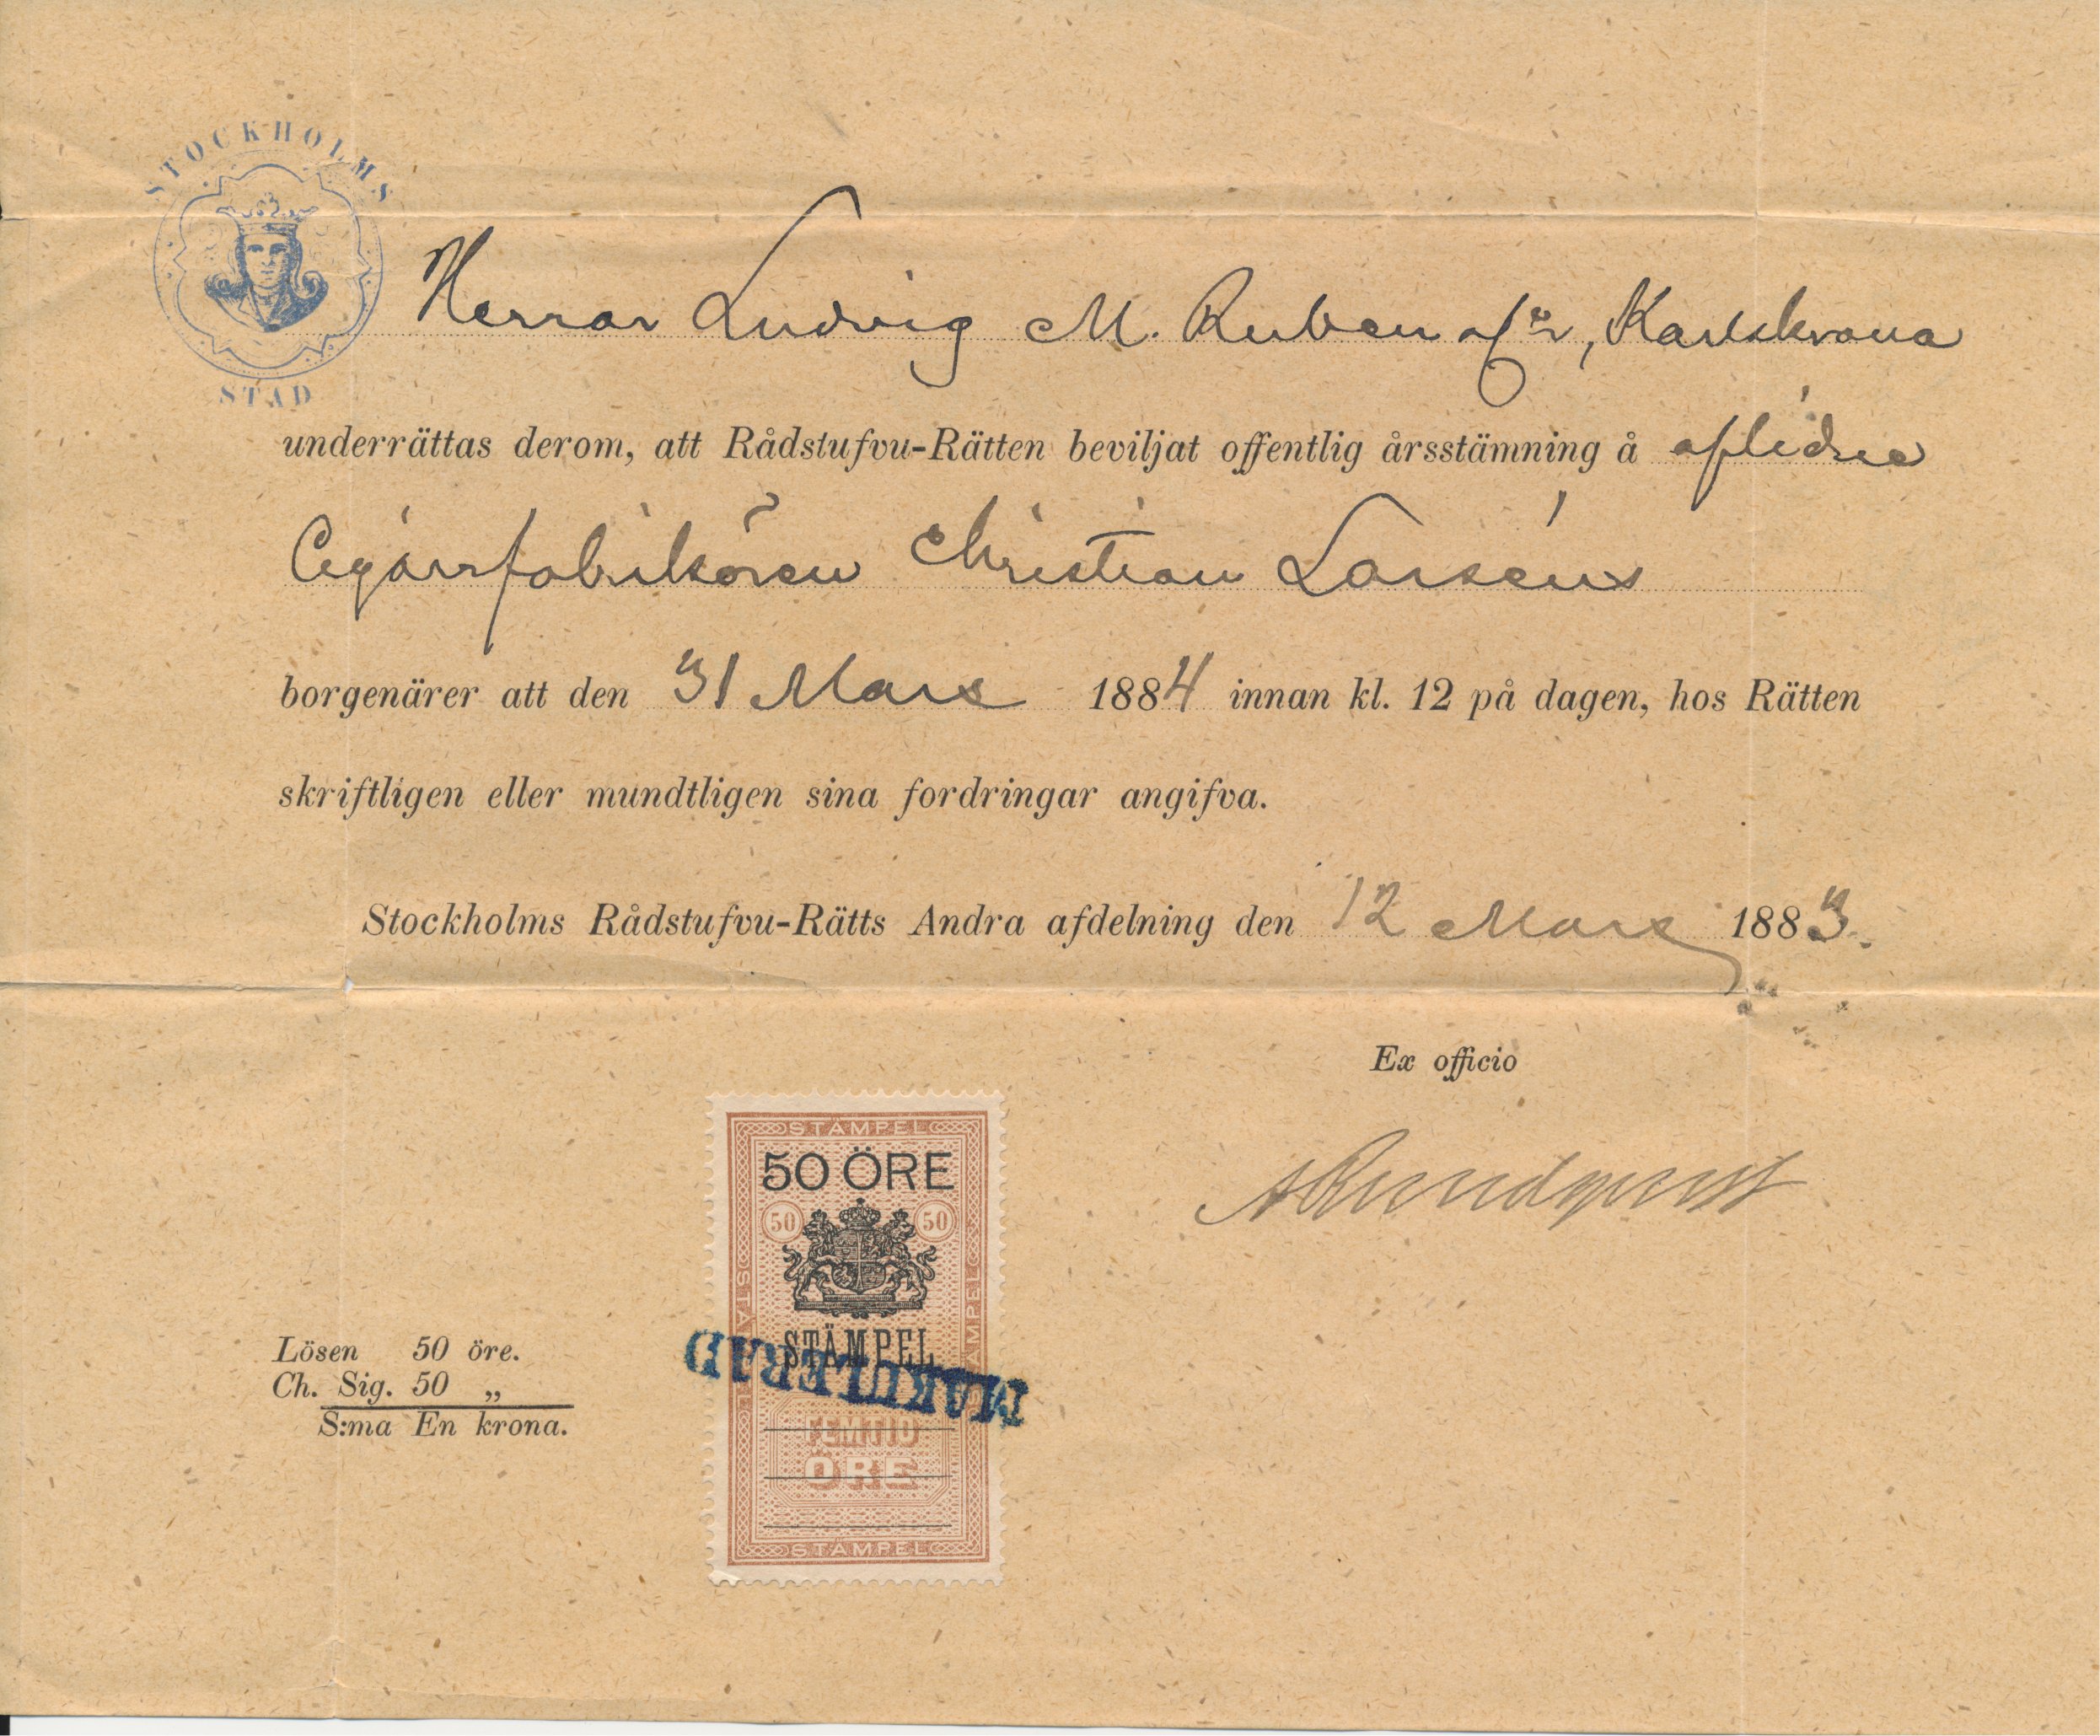 STOCKHOLMS
STAD
Herrar Ludvig M. Ruben & Co, Karlskrona
underrättas derom, att Rådstufvu-Rätten beviljat offentlig årsstämning å aflidne
Cigarrfabrikören Christian Larséns
borgenärer att den 31 Mars 1884 innan kl. 12 på dagen, hos Rätten
skriftligen eller mundtligen sina fordringar angifva.
Stockholms Rådstufvu-Rätts Andra afdelning den 12 Mars 1883.
Ex officio
A Rundquist
STÄMPEL
50 ÖRE
50 50
STÄMPEL
STÄMPEL
STÄMPEL
MAKULERAD
FEMTIO
ÖRE
STÄMPEL
Lösen 50 öre.
Ch. Sig. 50 „
S:ma En krona.